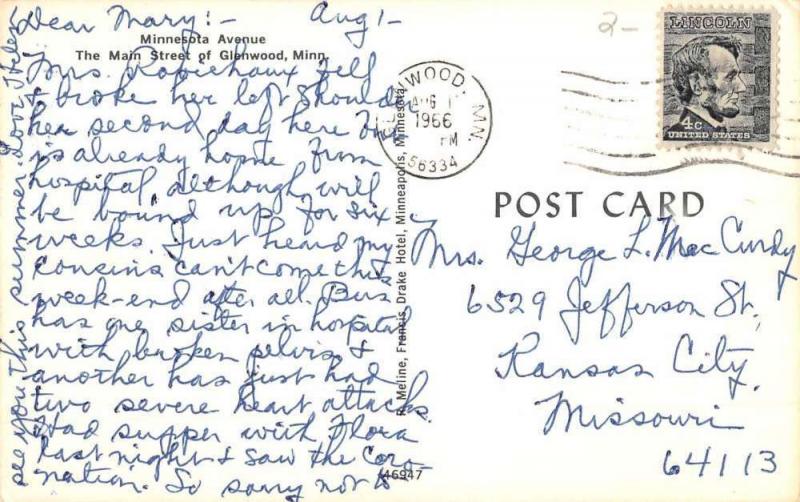 Dear Mary:- Aug 1-
Minnesota Avenue
The Main Street of Glenwood, Minn.
Mrs. Robichaux fell
& broke her left shoulder
her second day here
is already home from
hospital although will
be bound up for six
weeks. Just heard my
cousins can't come this
week-end after all.
has one sister in hospital
with broken pelvis &
another has just had
two severe heart attacks.
Had supper with Flora
last night & saw the Coro-
nation. So sorry not to
see you this summer. Love, Helen
46947
R. Meline, Francis Drake Hotel, Minneapolis, Minnesota
GLENWOOD, MN.
AUG 1
PM
1966
56334
2-
LINCOLN
4c
UNITED STATES
POST CARD
Mrs. George L. MacCurdy
6529 Jefferson St.,
Kansas City,
Missouri
64113